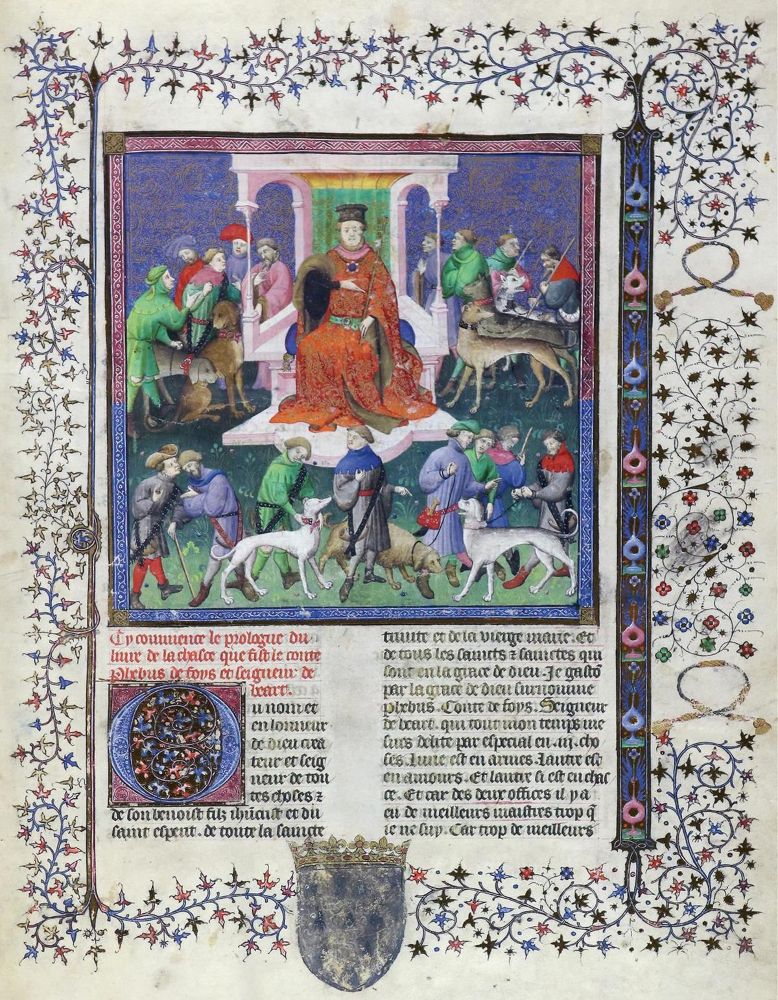 Cy commence le prologue du
liure de la chasce que fist le conte
phebus de foys et seigneur de
beart.
u nom et
en lonneur
de dieu crea
teur et seig
neur de tou
tes choses ⁊
de son benoist filz ihucrist et du
saint esperit. de toute la saincte
trinite et de la vierge marie. Et
de tous les saincts ⁊ sainctes qui
sont en la grace de dieu. Je gaston
par la grace de dieu surnomme
phebus. Conte de foys. Seigneur
de beart. qui tout mon temps me
suis delite par especial en .iii. cho
ses. lune est en armes. lautre est
en amours. Et lautre si est en chas
ce. Et car des deux offices il y a
eu de meilleurs maistres trop q̄
ie ne suy. Car trop de meilleurs